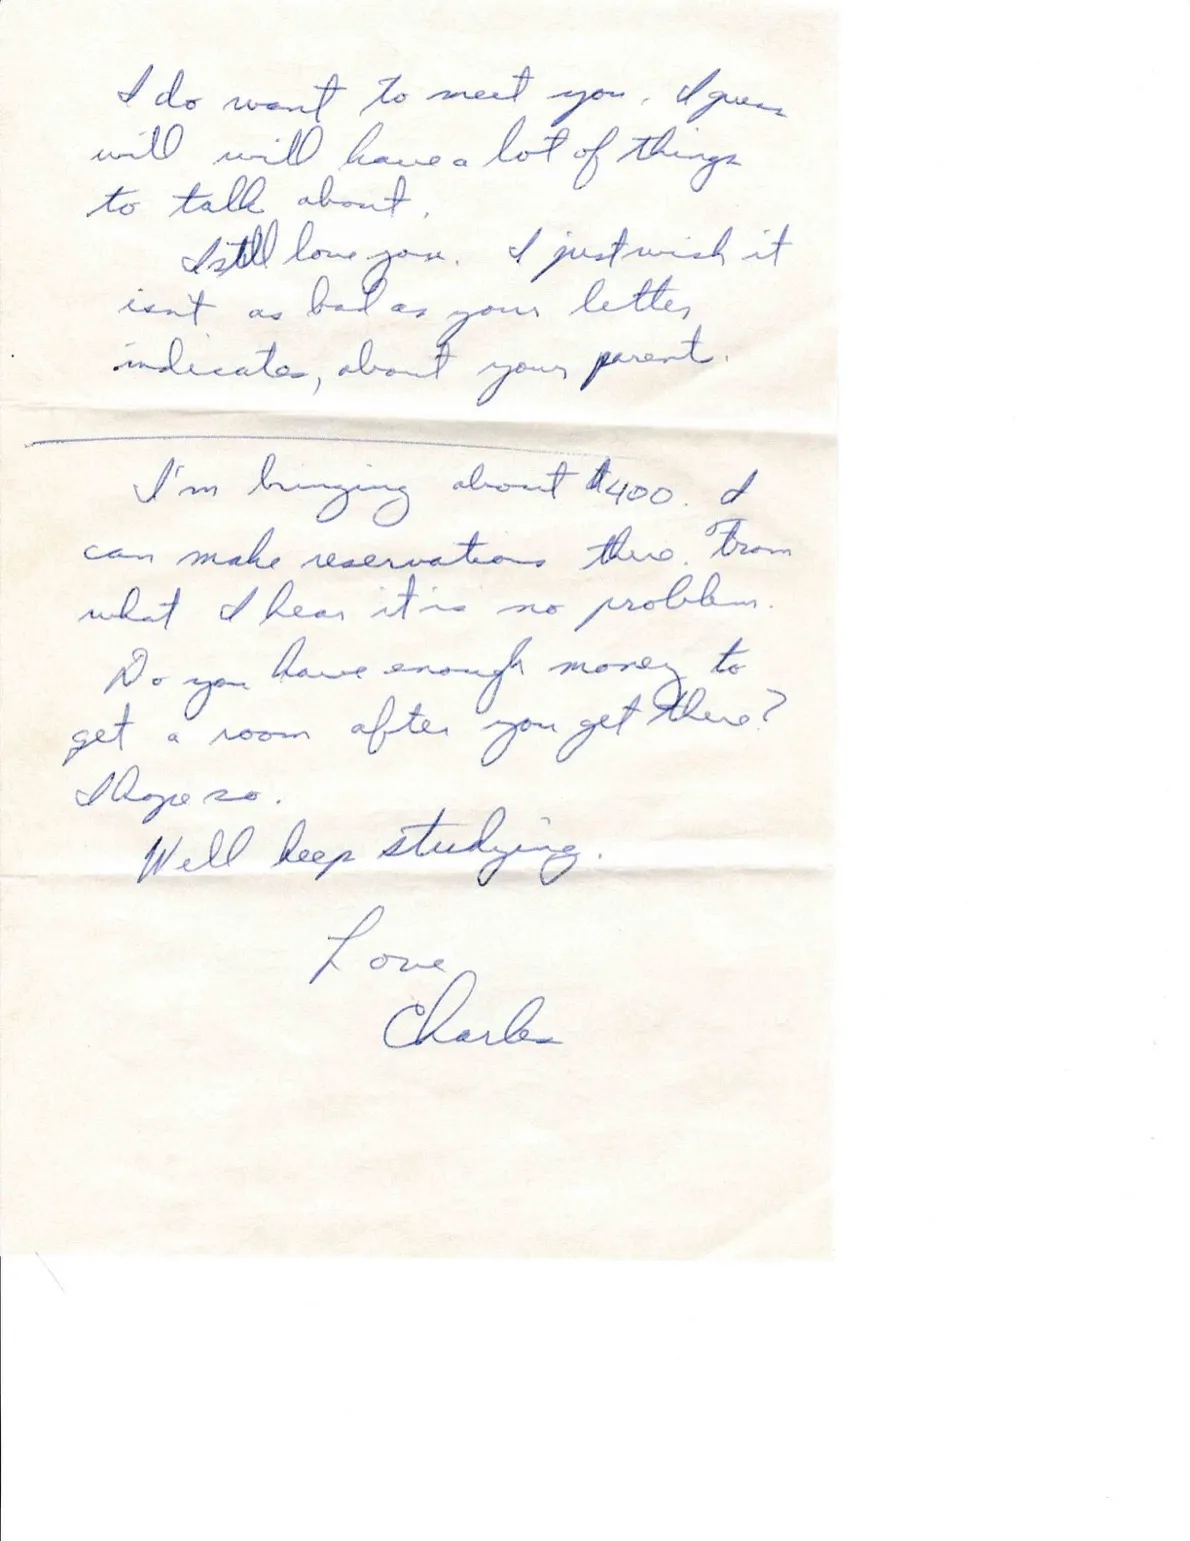 I do want to meet you. I guess
will will have a lot of things
to talk about.
I still love you. I just wish it
isn't as bad as your letter
indicates, about your parent.
I'm bringing about $400. I
can make reservations there. From
what I hear it is no problem.
Do you have enough money to
get a room after you get there?
I hope so.
Well keep studying.
Love
Charles